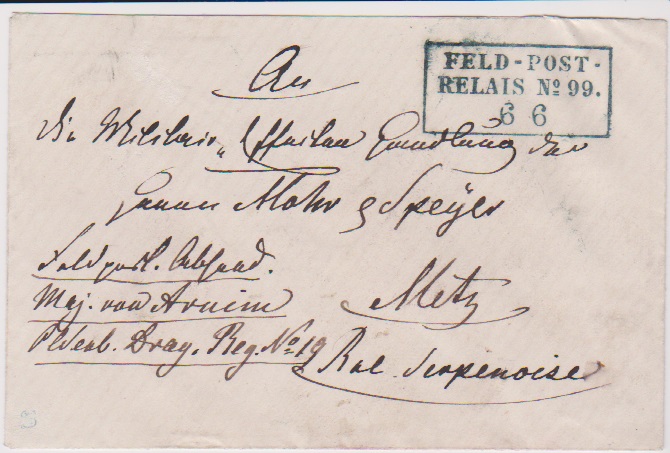 An
FELD-POST-
RELAIS No 99.
6 6
die Militair-Effecten Handlung der
Herren Mohr & Speyer
Feldpost. Absend.
Maj. von Arnim
Oldenb. Drag. Reg. No 19
Metz
Rue Serpenoise